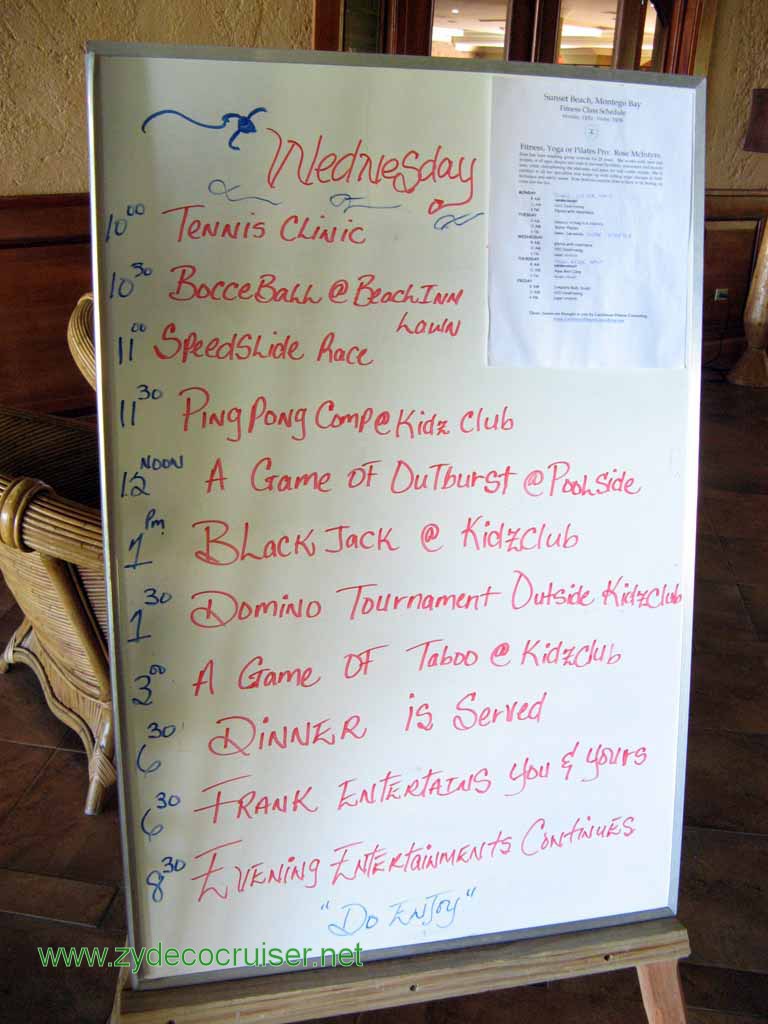 Wednesday
10:00 Tennis Clinic
10:30 BocceBall @ Beach Inn
Lawn
11:00 SpeedSlide Race
11:30 Ping Pong Comp @ Kidz Club
12 NOON A Game Of Outburst @ PoolSide
1 Pm BLack Jack @ Kidzclub
1:30 Domino Tournament Outside Kidzclub
3:00 A Game Of Taboo @ Kidzclub
6:30 Dinner is Served
6:30 Frank Entertains you & yours
8:30 Evening Entertainments Continues
"Do Enjoy"
Sunset Beach, Montego Bay
Fitness Class Schedule
Fitness, Yoga or Pilates Pro: Rose McIntyre
MONDAY
TUESDAY
WEDNESDAY
THURSDAY
FRIDAY
www.zydecocruiser.net